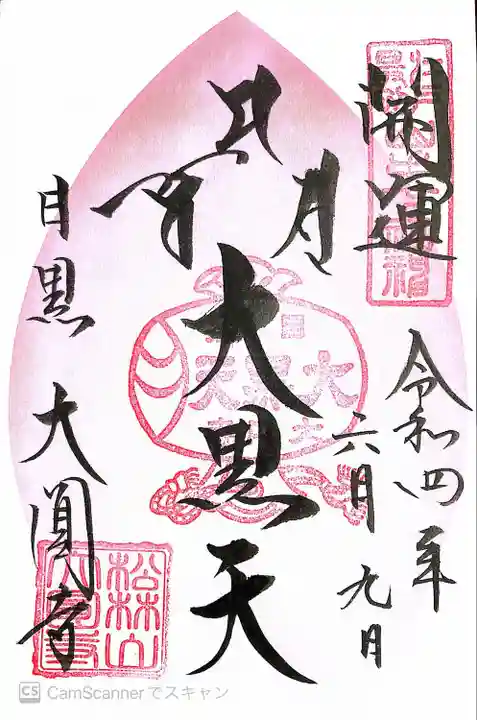 開運
令和四年
六月九日
大黒天
大黒天
目黒 大圓寺
松林山
大圓寺
CS CamScannerでスキャン